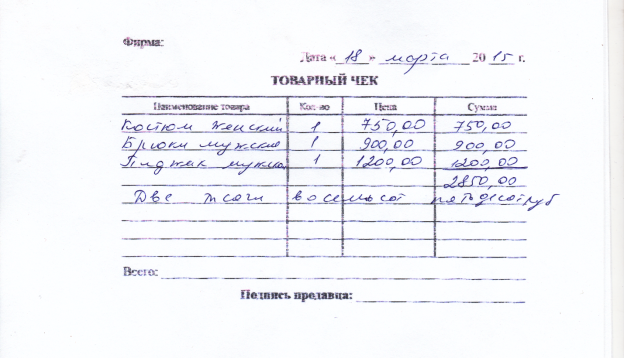 Фирма:
Дата « 18 » марта 20 15 г.
ТОВАРНЫЙ ЧЕК
Наименование товара Кол-во Цена Сумма
Костюм женский 1 750,00 750,00
Брюки мужские 1 900,00 900,00
Пиджак мужск 1 1200,00 1200,00
2850,00
Две восемьсот руб
Всего:
Подпись продавца: